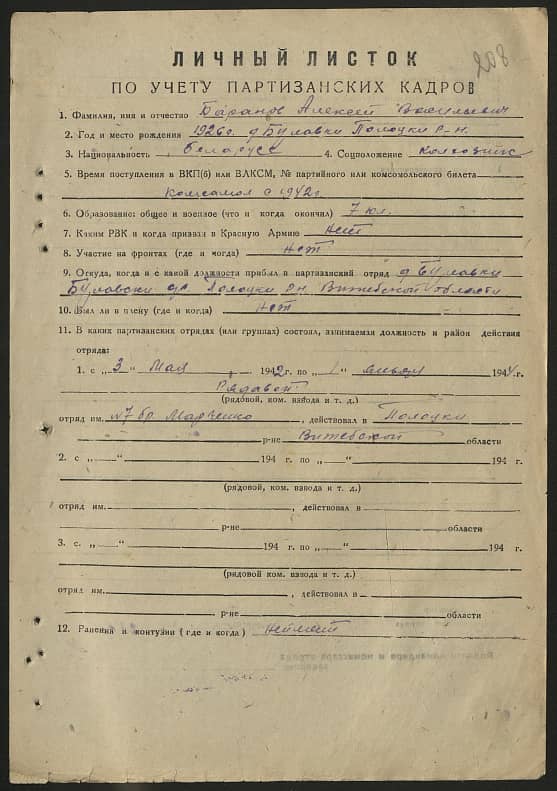 208
ЛИЧНЫЙ ЛИСТОК
ПО УЧЕТУ ПАРТИЗАНСКИХ КАДРОВ
1. Фамилия, имя и отчество Баранов Алексей Васильевич
2. Год и место рождения 1926 г. д Булавки Полоцки р-н.
3. Национальность беларусс 4. Соцположение колхозник
5. Время поступления в ВКП(б) или ВЛКСМ, № партийного или комсомольского билета
Комсамол с 1942 г.
6. Образование: общее и военное (что и когда окончил) 7 кл.
7. Каким РВК и когда призван в Красную Армию Нет
8. Участие на фронтах (где и когда) Нет
9. Откуда, когда и с какой должности прибыл в партизанский отряд д Булавки
Булавски Полоцки р-н Витебской области
10. Был ли в плену (где и когда) Нет
11. В каких партизанских отрядах (или группах) состоял, занимаемая должность и район действия
отряда:
1. с „3“ Мая 1942 г. по „1“ 1944 г.
Рядавой
(рядовой, ком. взвода и т. д.)
отряд им. №7 бр. Марченко, действовал в Полоцки
р-не Витебской области
2. с „—“ 194 г. по „—“ 194 г.
(рядовой, ком. взвода и т. д.)
отряд им. , действовал в
р-не области
3. с. „—“ 194 г. по „—“ 194 г.
(рядовой ком. взвода и т. д.)
отряд им. , действовал в
р-не области
12. Ранения и контузии (где и когда)